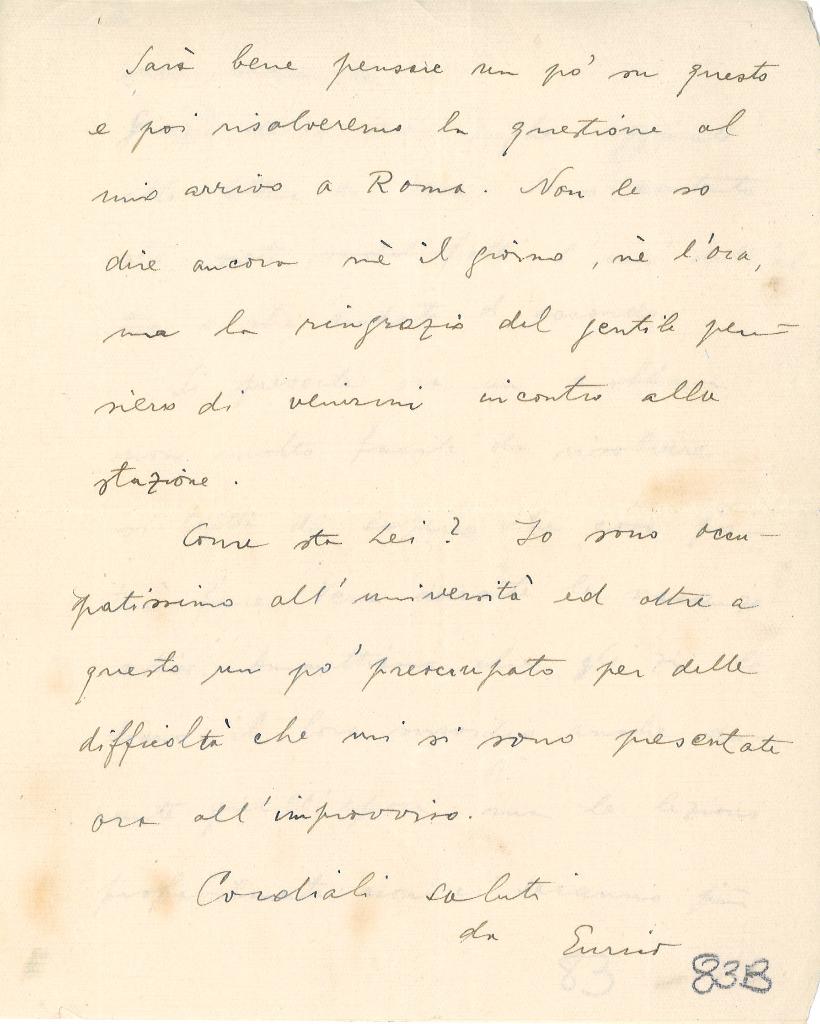 Sarà bene pensare un pò su questo
e poi risolveremo la questione al
mio arrivo a Roma. Non le so
dire ancora nè il giorno, nè l'ora,
ma la ringrazio del gentile pen-
siero di venirmi incontro alla
stazione.
Come sta Lei? Io sono occu-
patissimo all'università ed oltre a
questo un po' preoccupato per delle
difficoltà che mi si sono presentate
ora all'improvviso.
Cordiali saluti
da
83B